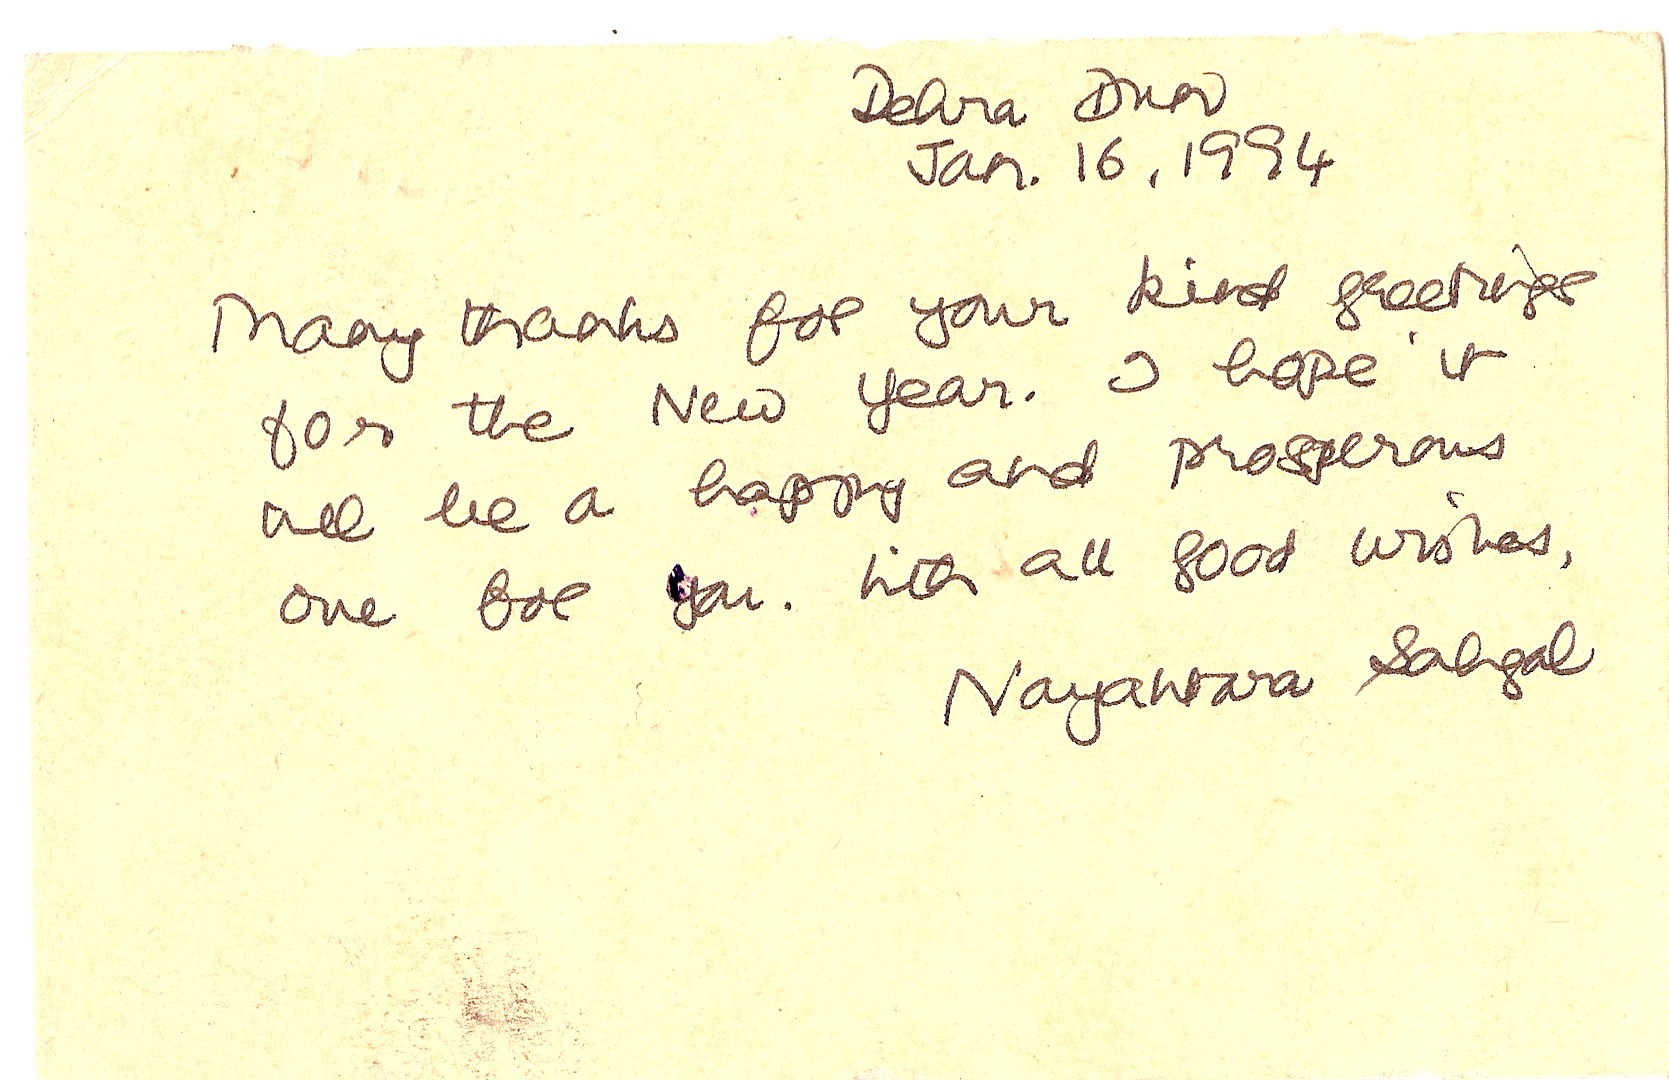 Dehra Dun
Jan. 16, 1994
Many thanks for your kind greetings
for the New Year. I hope it
will be a happy and prosperous
one for you. With all good wishes,
Nayantara Sahgal